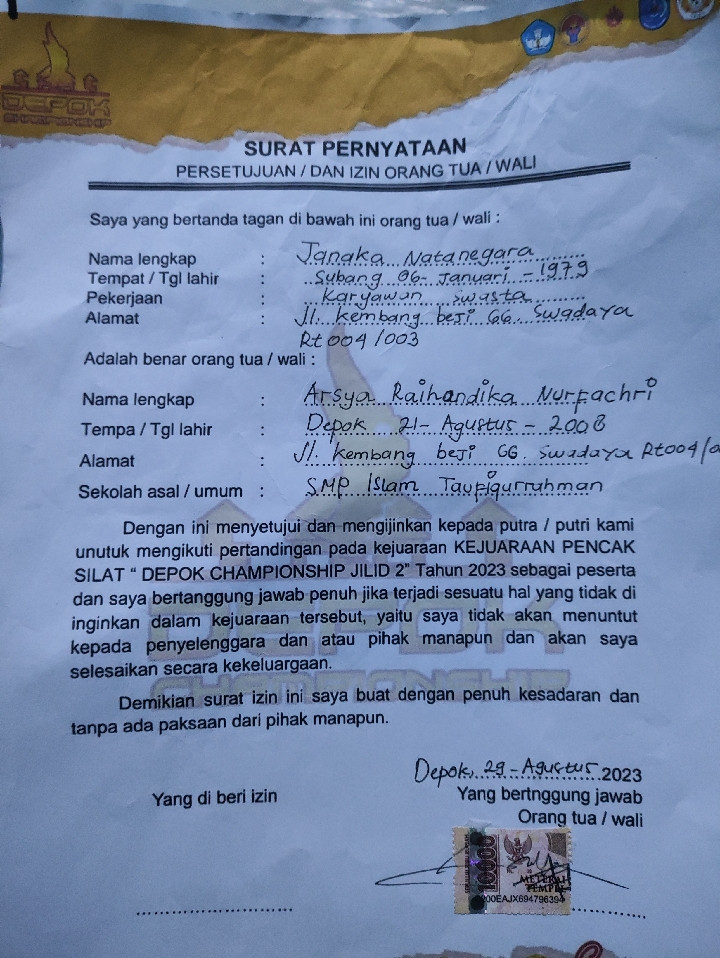 DEPOK
CHAMPIONSHIP
SURAT PERNYATAAN
PERSETUJUAN / DAN IZIN ORANG TUA / WALI
Saya yang bertanda tagan di bawah ini orang tua / wali :
Nama lengkap : Janaka Natanegara
Tempat / Tgl lahir : Subang 06- Januari - 1979
Pekerjaan : Karyawan swasta
Alamat : Jl. Kembang beji GG. Swadaya
Rt 004 / 003
Adalah benar orang tua / wali :
Nama lengkap : Arsya Raihandika Nurfachri
Tempa / Tgl lahir : Depok 21- Agustus - 2008
Alamat : Jl. Kembang beji GG. Swadaya Rt004/0
Sekolah asal / umum : SMP Islam Taufiqurrahman
Dengan ini menyetujui dan mengijinkan kepada putra / putri kami
unutuk mengikuti pertandingan pada kejuaraan KEJUARAAN PENCAK
SILAT " DEPOK CHAMPIONSHIP JILID 2" Tahun 2023 sebagai peserta
dan saya bertanggung jawab penuh jika terjadi sesuatu hal yang tidak di
inginkan dalam kejuaraan tersebut, yaitu saya tidak akan menuntut
kepada penyelenggara dan atau pihak manapun dan akan saya
selesaikan secara kekeluargaan.
DEPOK
CHAMPIONSHIP
Demikian surat izin ini saya buat dengan penuh kesadaran dan
tanpa ada paksaan dari pihak manapun.
Depok, 29 - Agustus 2023
Yang di beri izin
Yang bertnggung jawab
Orang tua / wali
10000
METERAI
TEMPEL